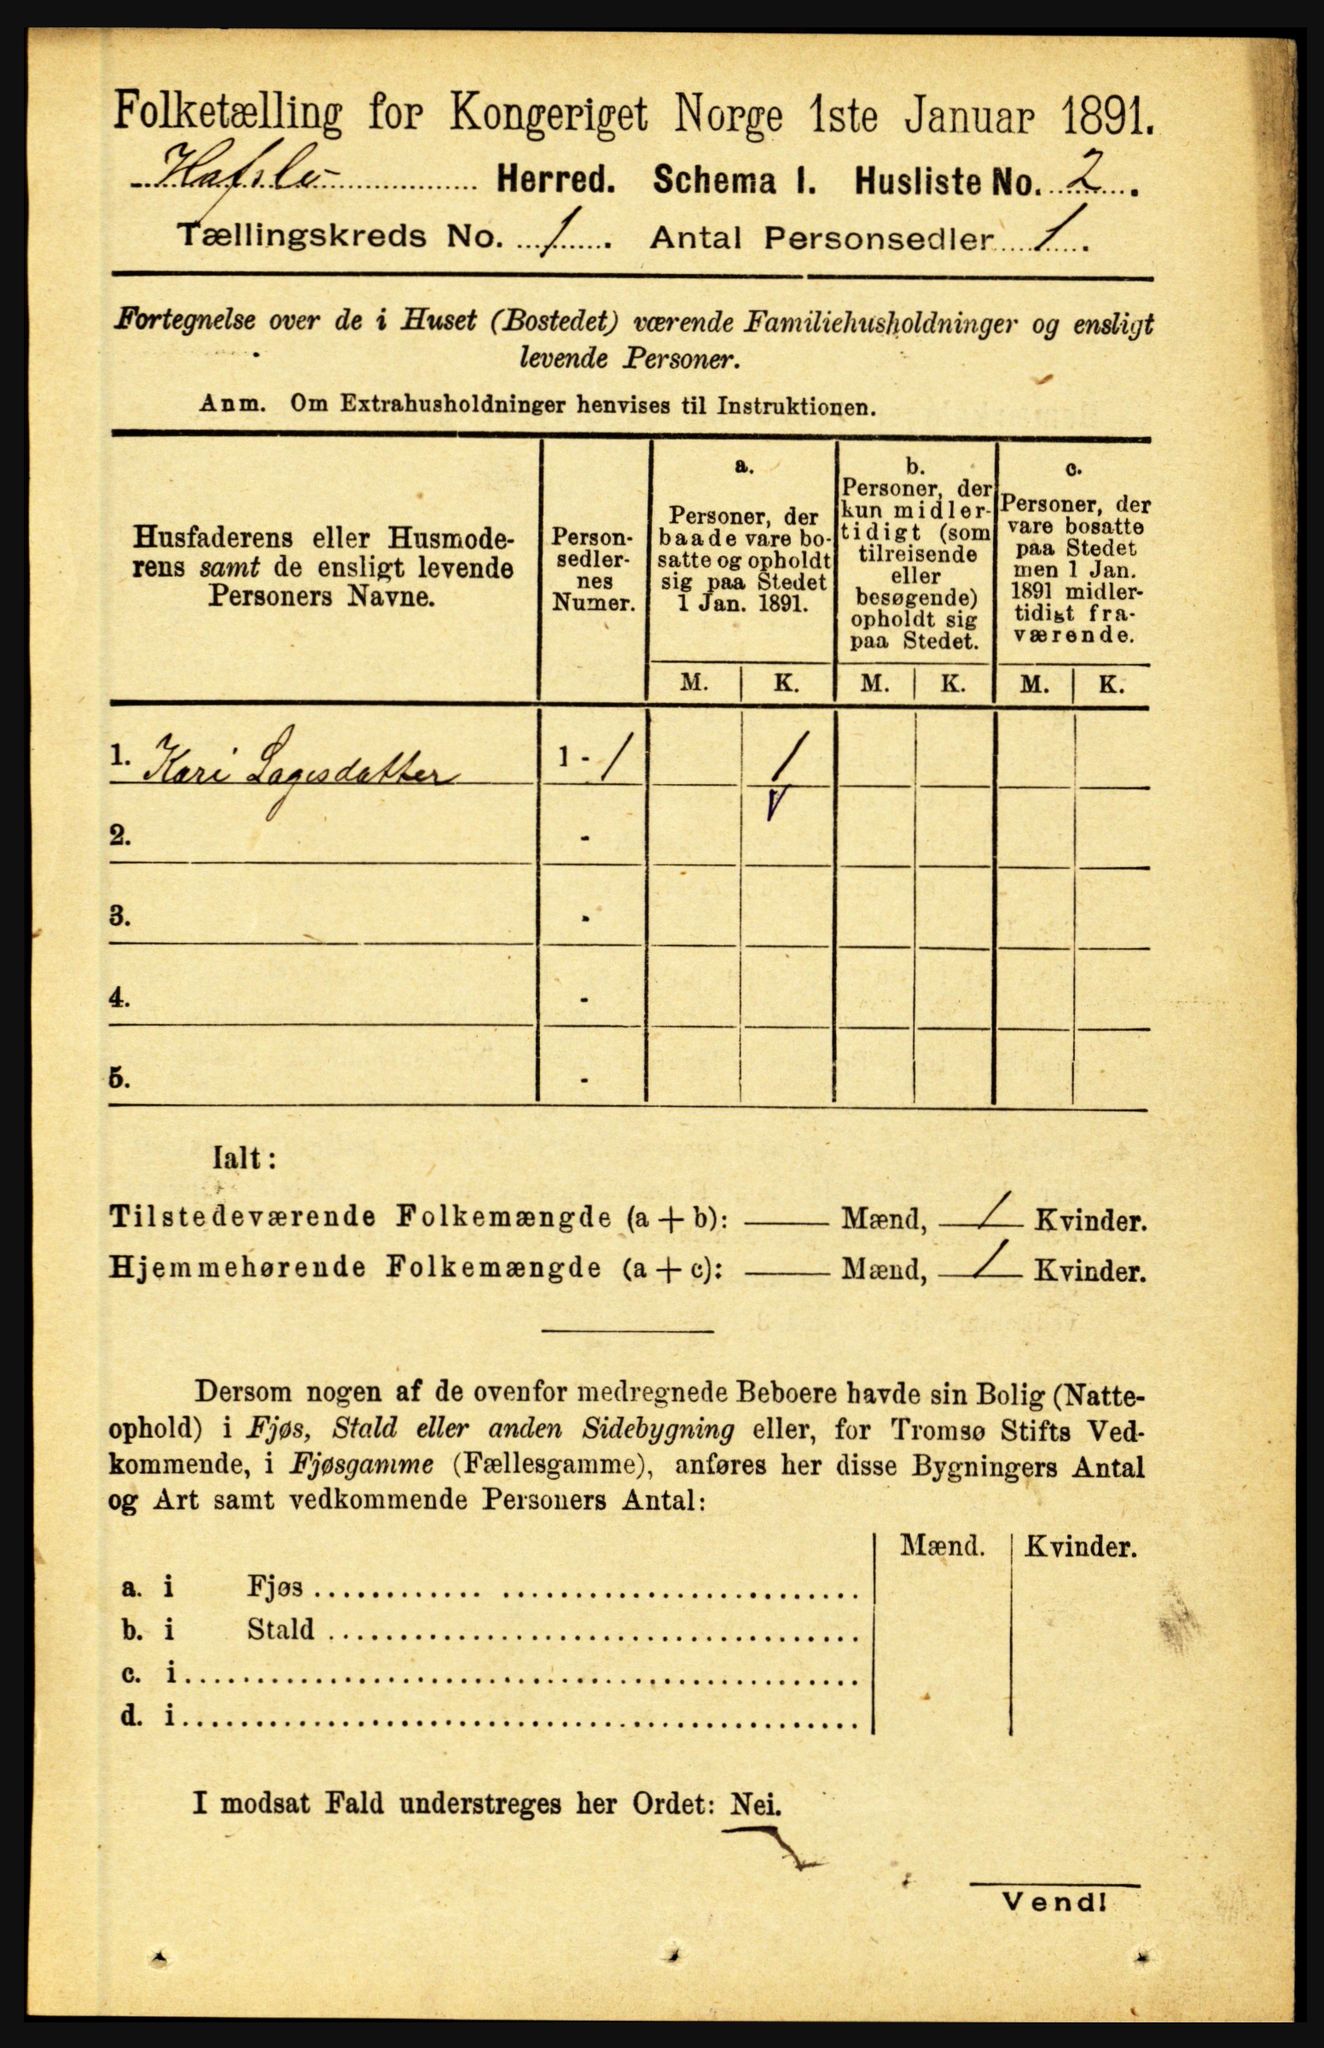 Folketælling for Kongeriget Norge 1ste Januar 1891.
Hafslo Herred. Schema 1. Husliste No. 2.
Tællingskreds No. 1. Antal Personsedler 1.
Fortegnelse over de i Huset (Bostedet) værende Familiehusholdninger og ensligt
levende Personer.
Anm. Om Extrahusholdninger henvises til Instruktionen.
Husfaderens eller Husmode-
rens samt de ensligt levende
Personers Navne.
Person-
sedler-
nes
Numer.
a.
Personer, der
baade vare bo-
satte og opholdt
sig paa Stedet
1 Jan. 1891.
b.
Personer, der
kun midler-
tidigt (som
tilreisende
eller
besøgende)
opholdt sig
paa Stedet.
c.
Personer, der
vare bosatte
paa Stedet
men 1 Jan.
1891 midler-
tidigt fra-
værende.
M. K. M. K. M. K.
1. Kari Lagesdatter 1 - 1 1
2. -
3. -
4. -
5. -
Ialt:
Tilstedeværende Folkemængde (a + b): — Mænd, 1 Kvinder.
Hjemmehørende Folkemængde (a + c): — Mænd, 1 Kvinder.
Dersom nogen af de ovenfor medregnede Beboere havde sin Bolig (Natte-
ophold) i Fjøs, Stald eller anden Sidebygning eller, for Tromsø Stifts Ved-
kommende, i Fjøsgamme (Fællesgamme), anføres her disse Bygningers Antal
og Art samt vedkommende Personers Antal:
Mænd. Kvinder.
a. i Fjøs
b. i Stald
c. i
d. i
I modsat Fald understreges her Ordet: Nei.
Vend!